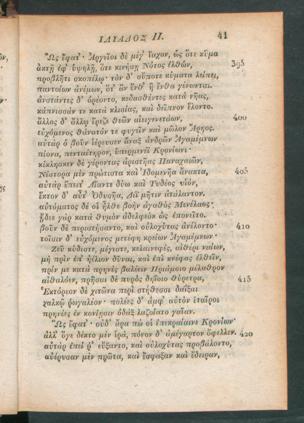 ΙΛΙΑΔΟΣ ΙΙ. 41
Ὣς ἔφατ'· Ἀργεῖοι δὲ μέγ' ἴαχον, ὡς ὅτε κῦμα
ἀκτῇ ἐφ' ὑψηλῇ, ὅτε κινήσῃ Νότος ἐλθών, 395
προβλῆτι σκοπέλῳ· τὸν δ' οὔποτε κύματα λείπει,
παντοίων ἀνέμων, ὅτ' ἂν ἔνθ' ἢ ἔνθα γένωνται.
ἀνστάντες δ' ὀρέοντο, κεδασθέντες κατὰ νῆας,
κάπνισσάν τε κατὰ κλισίας, καὶ δεῖπνον ἕλοντο.
ἄλλος δ' ἄλλῳ ἔρεζε θεῶν αἰειγενετάων, 400
εὐχόμενος θάνατόν τε φυγεῖν καὶ μῶλον Ἄρηος.
αὐτὰρ ὁ βοῦν ἱέρευσεν ἄναξ ἀνδρῶν Ἀγαμέμνων
πίονα, πενταέτηρον, ὑπερμενέϊ Κρονίωνι·
κίκλησκεν δὲ γέροντας ἀριστῆας Παναχαιῶν,
Νέστορα μὲν πρώτιστα καὶ Ἰδομενῆα ἄνακτα, 405
αὐτὰρ ἔπειτ' Αἴαντε δύω καὶ Τυδέος υἱόν,
ἕκτον δ' αὖτ' Ὀδυσῆα, Διῒ μῆτιν ἀτάλαντον.
αὐτόματος δέ οἱ ἦλθε βοὴν ἀγαθὸς Μενέλαος·
ᾔδεε γὰρ κατὰ θυμὸν ἀδελφεὸν ὡς ἐπονεῖτο.
βοῦν δὲ περιστήσαντο, καὶ οὐλοχύτας ἀνέλοντο· 410
τοῖσιν δ' εὐχόμενος μετέφη κρείων Ἀγαμέμνων·
Ζεῦ κύδιστε, μέγιστε, κελαινεφές, αἰθέρι ναίων,
μὴ πρὶν ἐπ' ἠέλιον δῦναι, καὶ ἐπὶ κνέφας ἐλθεῖν,
πρίν με κατὰ πρηνὲς βαλέειν Πριάμοιο μέλαθρον
αἰθαλόεν, πρῆσαι δὲ πυρὸς δηΐοιο θύρετρα, 415
Ἑκτόρεον δὲ χιτῶνα περὶ στήθεσσι δαΐξαι
χαλκῷ ῥωγαλέον· πολέες δ' ἀμφ' αὐτὸν ἑταῖροι
πρηνέες ἐν κονίῃσιν ὀδὰξ λαζοίατο γαῖαν.
Ὣς ἔφατ'· οὐδ' ἄρα πώ οἱ ἐπεκραίαινε Κρονίων·
ἀλλ' ὅγε δέκτο μὲν ἱρά, πόνον δ' ἀμέγαρτον ὄφελλεν. 420
αὐτὰρ ἐπεί ῥ' εὔξαντο, καὶ οὐλοχύτας προβάλοντο,
αὐέρυσαν μὲν πρῶτα, καὶ ἔσφαξαν καὶ ἔδειραν,